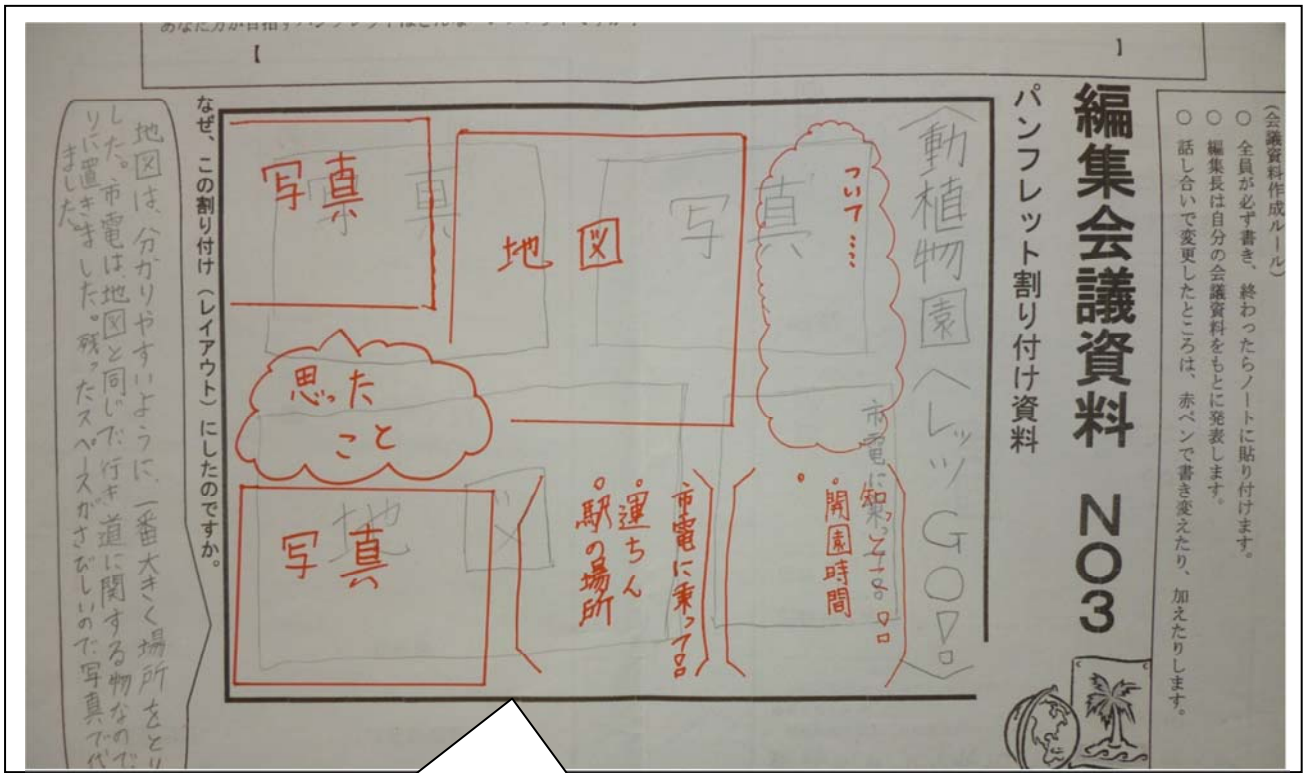 (会議資料作成ルール)
○ 全員が必ず書き、終わったらノートに貼り付けます。
○ 編集長は自分の会議資料をもとに発表します。
○ 話し合いで変更したところは、赤ペンで書き変えたり、加えたりします。
編集会議資料 NO3
パンフレット割り付け資料
【 】
〈動植物園へレッツGO!!〉
ついて……
知っとこ!!
・開園時間
・
市電に乗って!!
写真
地図
市電に乗って!!
・運ちん
・駅の場所
地図
写真
写真
思った
こと
写真
なぜ、この割り付け(レイアウト)にしたのですか。
地図は、分かりやすいように、一番大きく場所をとり
した。市電は、地図と同じで行き道に関する物なので
りに置きました。残ったスペースがさびしいので写真で代
ました。